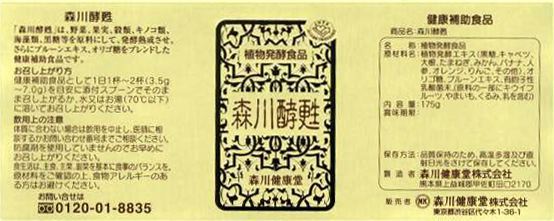 森川酵甦
「森川酵甦」は、野菜、果実、穀類、キノコ類、
海藻類、黒糖等を原料にして、発酵熟成させ、
さらにプルーンエキス、オリゴ糖をブレンドした
健康補助食品です。
お召し上がり方
健康補助食品として1日1杯〜2杯(3.5g
〜7.0g)を目安に添付スプーンでそのま
まお召し上がるか、水又はお湯(70℃以下)
に溶いてお召し上がりください。
飲用上の注意
体質に合わない場合は飲用を中止し、医師に相
談するかお問い合わせ番号までご相談ください。
防腐剤を使用していませんのでお早めに
お召し上がりください。
食生活は、主食、主菜、副菜を基本に食事のバランスを。
原材料をご確認の上、食物アレルギーのあ
る方はお避けください。
お問い合せは
0120-01-8835
植物発酵食品
森川酵甦
森川健康堂
健康補助食品
商品名:森川酵甦
名 称:植物発酵食品
原材料名:植物発酵エキス(黒糖、キャベツ、
大根、たまねぎ、みかん、バナナ、人
参、オレンジ、りんご、その他)、オリ
ゴ糖、プルーンエキス、有胞子性
乳酸菌末、(原料の一部にキウイフ
ルーツ、やまいも、くるみ、乳を含む)
内容量:175g
賞味期限:
保存方法:品質保持のため、高温多湿及び直
射日光をさけて保存してください。
製造者 森川健康堂株式会社
熊本県上益城郡甲佐町田口2170
販売者 MK 森川健康堂株式会社
東京都渋谷区代々木1-36-1